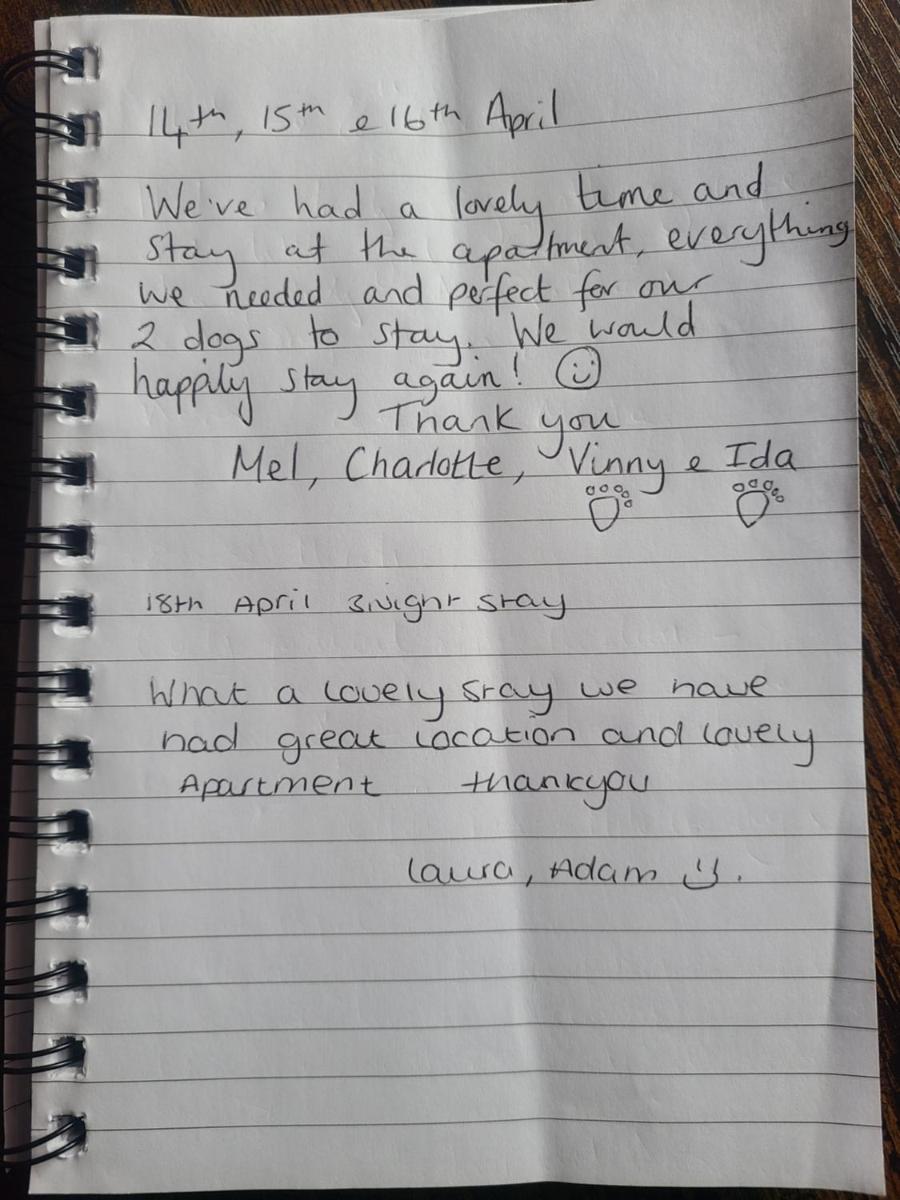 14th, 15th e 16th April
We've had a lovely time and
stay at the apartment, everything
we needed and perfect for our
2 dogs to stay. We would
happily stay again! ☺
Thank you
Mel, Charlotte, Vinny e Ida
18th April 3 Night stay
What a lovely stay we have
had great location and lovely
Apartment thankyou
Laura, Adam ☺.